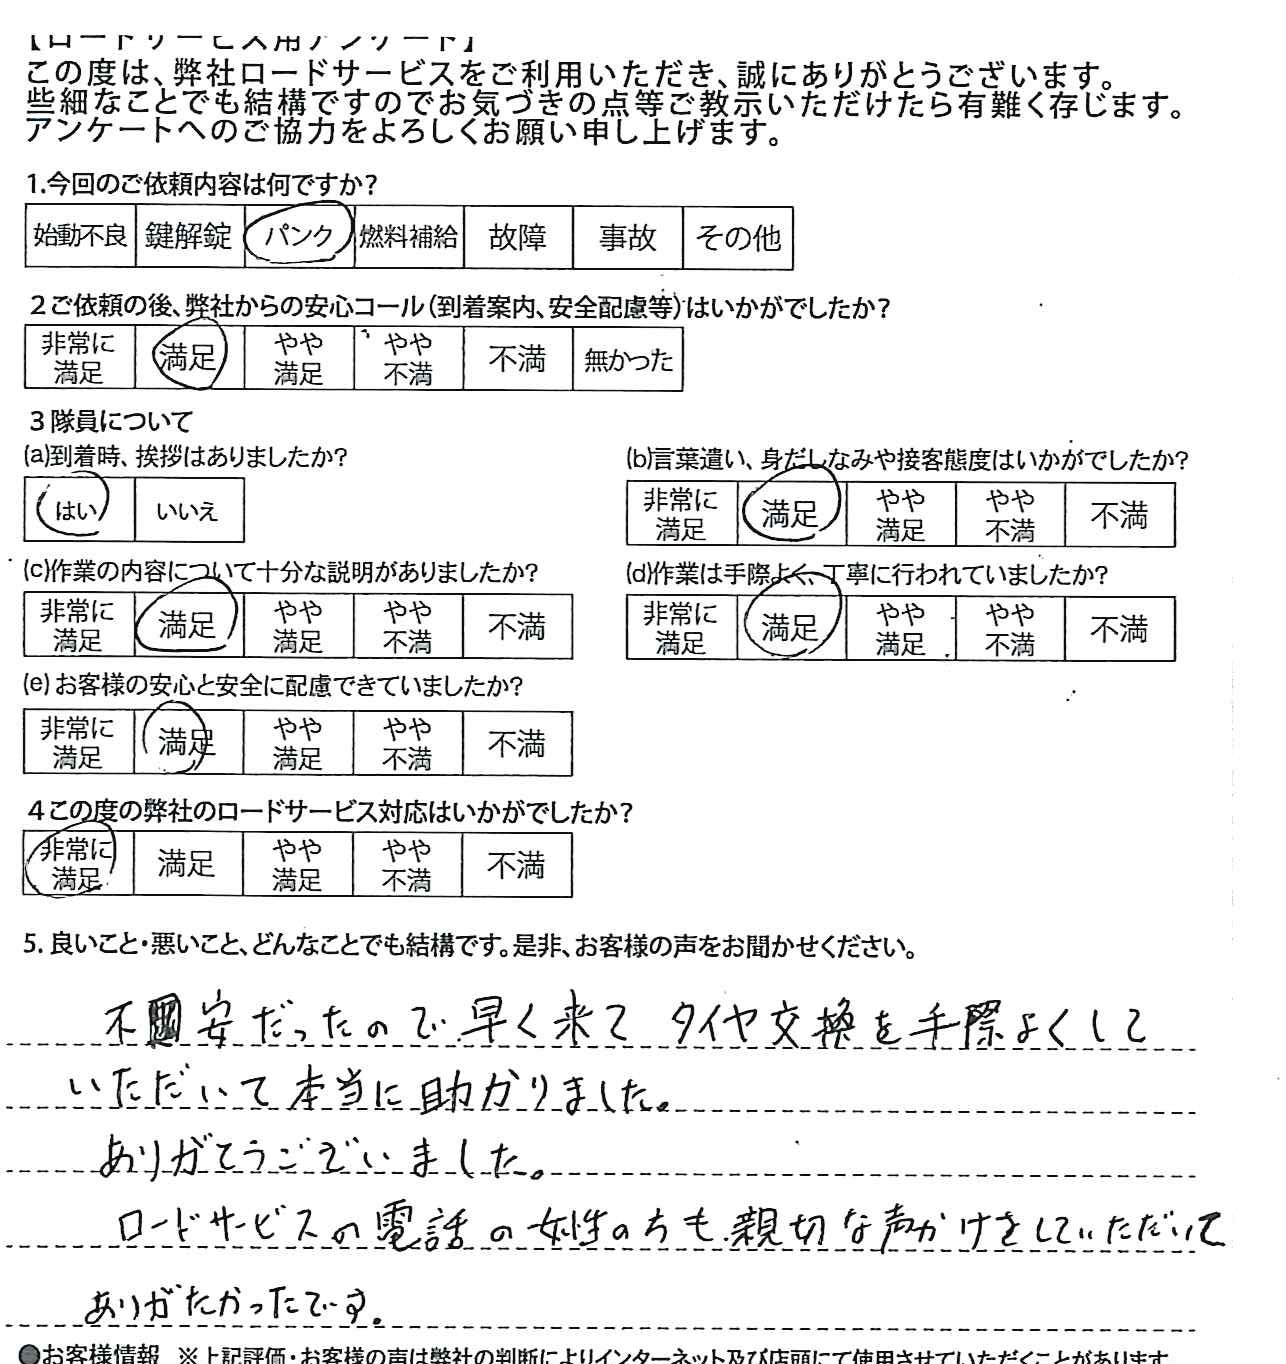 【ロードサービス用アンケート】
この度は、弊社ロードサービスをご利用いただき、誠にありがとうございます。
些細なことでも結構ですのでお気づきの点等ご教示いただけたら有難く存じます。
アンケートへのご協力をよろしくお願い申し上げます。
1.今回のご依頼内容は何ですか?
始動不良 鍵解錠 パンク 燃料補給 故障 事故 その他
2ご依頼の後、弊社からの安心コール(到着案内、安全配慮等)はいかがでしたか?
非常に満足 満足 やや満足 やや不満 不満 無かった
3隊員について
(a)到着時、挨拶はありましたか?
はい いいえ
(b)言葉遣い、身だしなみや接客態度はいかがでしたか?
非常に満足 満足 やや満足 やや不満 不満
(c)作業の内容について十分な説明がありましたか?
非常に満足 満足 やや満足 やや不満 不満
(d)作業は手際よく、丁寧に行われていましたか?
非常に満足 満足 やや満足 やや不満 不満
(e)お客様の安心と安全に配慮できていましたか?
非常に満足 満足 やや満足 やや不満 不満
4この度の弊社のロードサービス対応はいかがでしたか?
非常に満足 満足 やや満足 やや不満 不満
5.良いこと・悪いこと、どんなことでも結構です。是非、お客様の声をお聞かせください。
不安だったので早く来て タイヤ交換を手際よくして
いただいて本当に助かりました。
ありがとうございました。
ロードサービスの電話の女性の方も親切な声かけをしていただいて
ありがたかったです。
●お客様情報 ※上記評価・お客様の声は弊社の判断によりインターネット及び店頭にて使用させていただくことがあります。